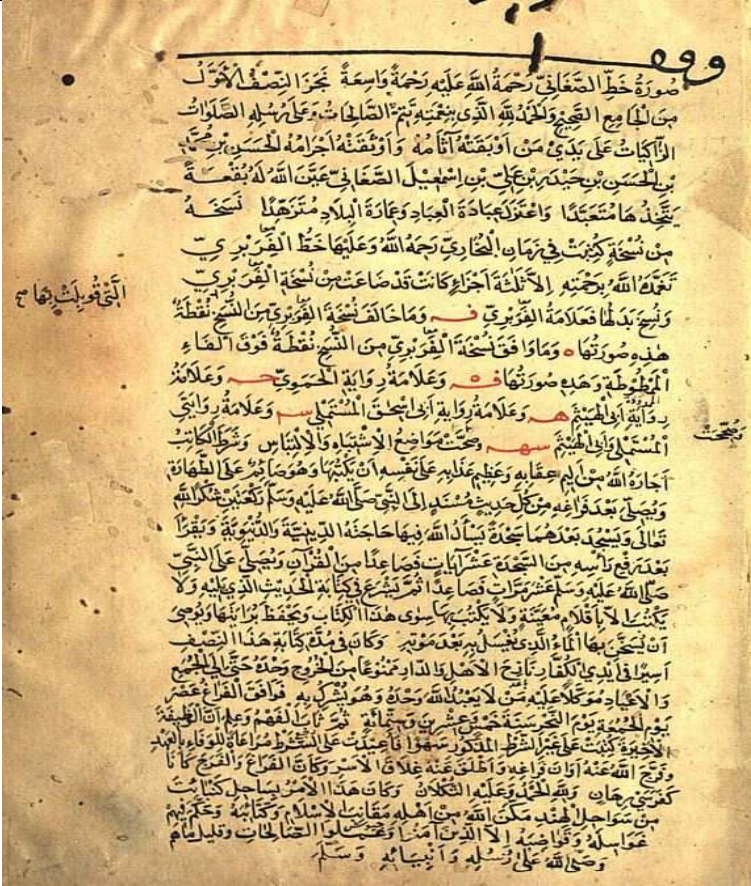 وقف
صورة خط الصغاني رحمة الله عليه رحمة واسعة نجز النصف الأول
من الجامع الصحيح والحمد لله الذي بنعمته تتم الصالحات وعلى رسله الصلوات
الزاكيات على يدي من أوبقته آثامه وأوثقته أجرامه الحسن بن محمد
بن الحسن بن حيدر بن علي بن إسمعيل الصغاني عين الله له بقعة
يتخذها متعبدا واعتزل عبادة العباد وعمارة البلاد متزهدا نسخه
من نسخة كتبت في زمان البخاري رحمه الله وعليها خط الفربري
تغمده الله برحمته إلا ثلثة أجزاء كانت قد ضاعت من نسخة الفربري
التي قوبلت بها صح
ونسخ بدلها فعلامة الفربري ف وما خالف نسخة الفربري من النسخ نقطة
هذه صورتها ه وما وافق نسخة الفربري من النسخ نقطة فوق الفاء
المطوطة وهذه صورتها ف وعلامة رواية الحموي حـ وعلامة
رواية أبي الهيثم هـ وعلامة رواية أبي اسحق المستملي سـ وعلامة روايتي
المستملي وأبي الهيثم سهـ وصحت مواضع الاشتباه والالتباس وشرط الكاتب
وصححت
أجاره الله من أليم عقابه وعظيم عذابه على نفسه أن يكتبها وهو صائم على الطهارة
ويصلي بعد فراغه من كل حديث مسند إلى النبي صلى الله عليه وسلم ركعتين شكرا لله
تعالى ويسجد بعدهما سجدة يسأل الله فيها حاجته الدينية والدنيوية ويقرأ
بعد رفع رأسه من السجدة عشر آيات فصاعدا من القرآن ويصلي على النبي
صلى الله عليه وسلم عشر مرات فصاعدا ثم يشرع في كتابة الحديث الذي يليه ولا
يكتب إلا بأقلام معينة ولا يكتب بها سوى هذا الكتاب ويحفظ برايتها ويوصي
أن يسخن بها الماء الذي يغسل به بعد موته وكان في مدة كتابة هذا النصف
أسيرا في أيدي الكفار نازح الأهل والدار ممنوعا من الخروج وحده حتى إلى الجمع
والأعياد موكلا عليه من لا يعبد الله وحده وهو يشرك به فوافق الفراغ عصر
يوم الجمعة يوم النحر سنة خمس وعشرين وستمائة ثم ثاب الفهم وعلم أن
الأخيرة كتبت على غير الشرط المذكور سهوا فأعيدت على الشرط مراعاة للوفاء بالعهد
وفرج الله عنه أوان فراغه وأطلق عنه غلاق الأسر وكان الفراغ والفرج كانا
كفرسي رهان ولله الحمد وعليه التكلان وكان هذا الأمر بساحل
من سواحل الهند مكن الله من أهله مقانب الإسلام وكتائبه وحكم فيهم
عواسله وقواضبه إلا الذين آمنوا وعملوا الصالحات وقليل ما هم
وصلى الله على رسله وأنبيائه وسلم